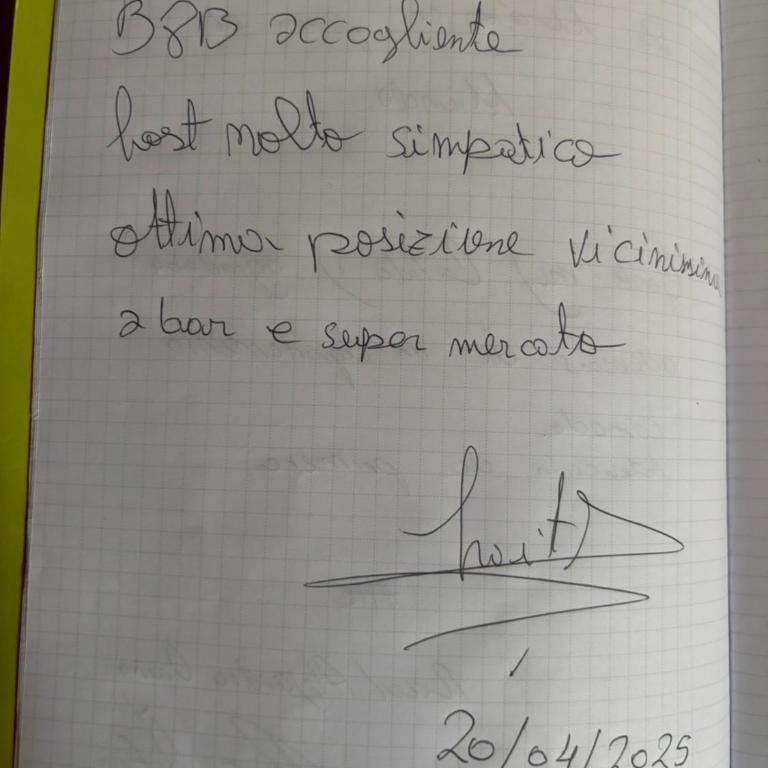 B&B accogliente
host molto simpatico
ottima posizione vicinimima
a bar e super mercato
20/04/2025